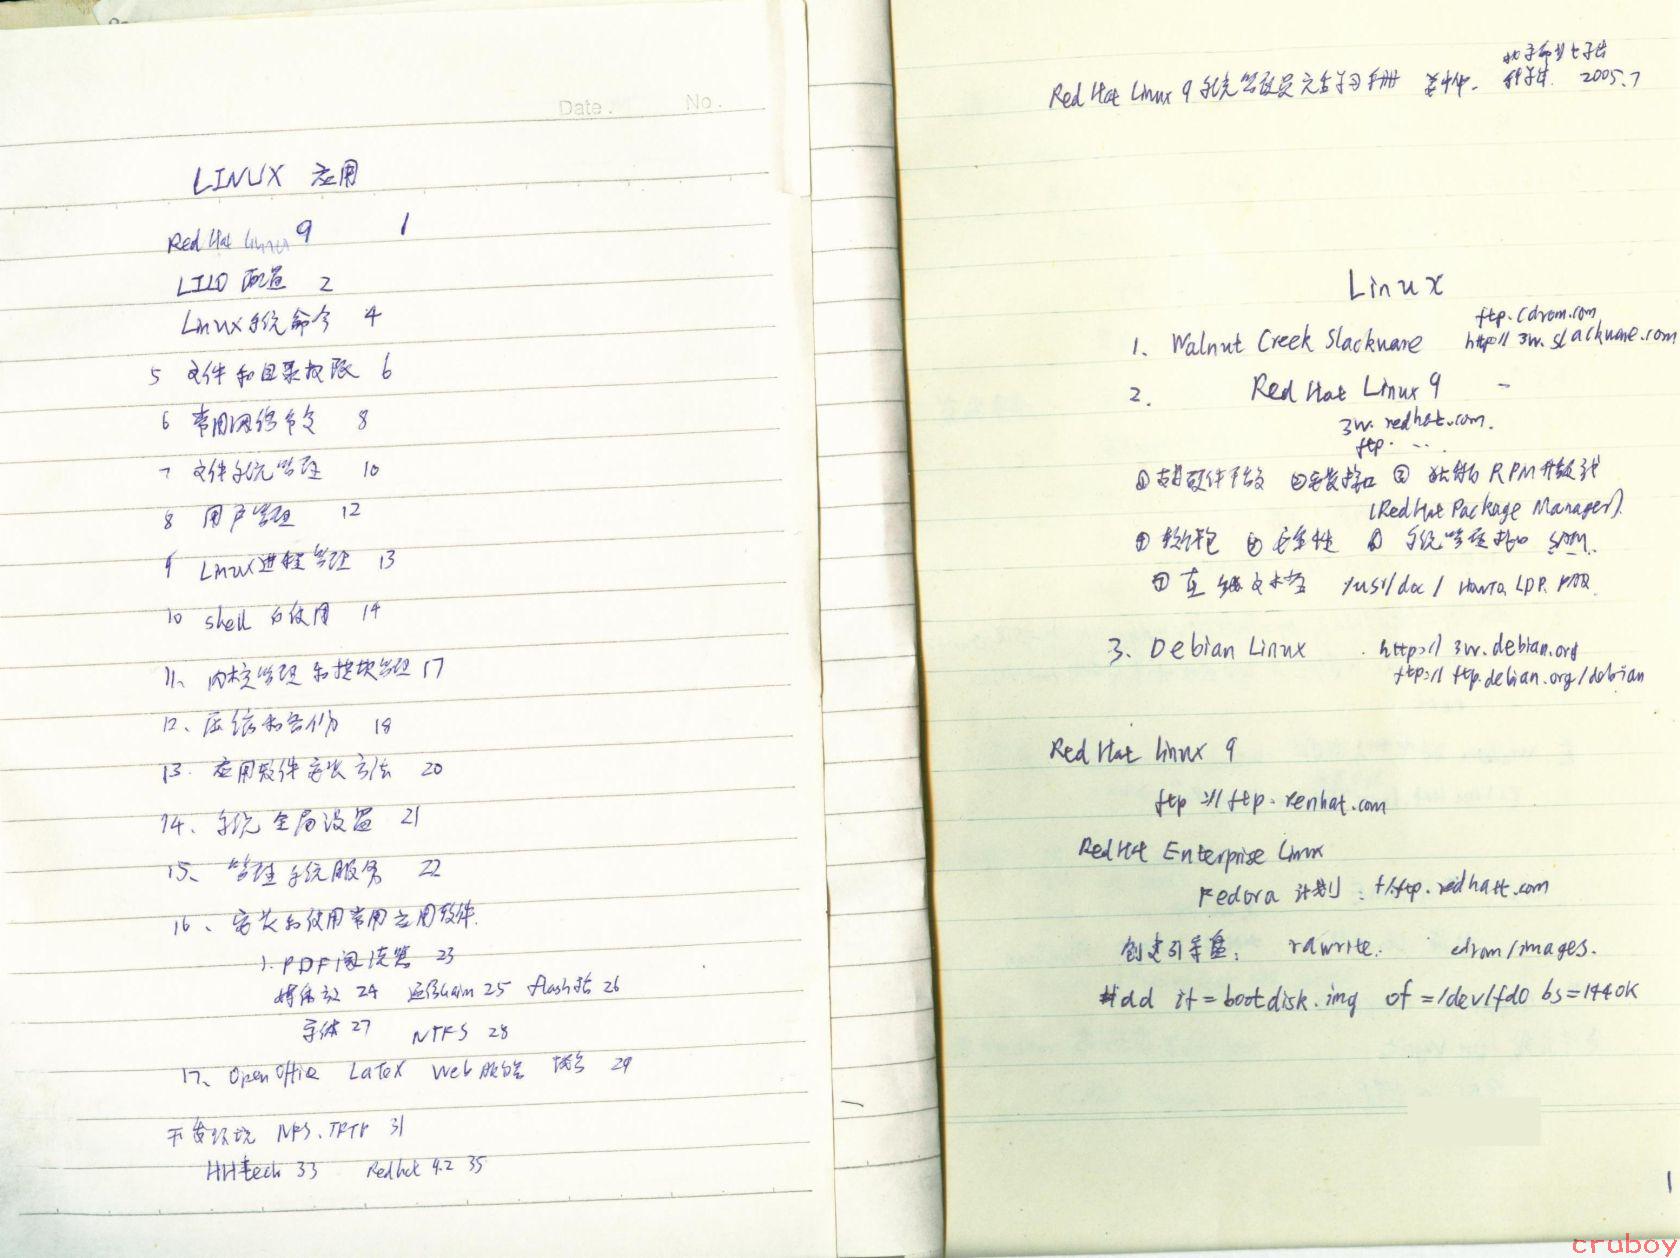 Date. No.
LINUX 应用
Red Hat Linux 9 1
LILO 配置 2
Linux系统命令 4
5 文件和目录权限 6
6 常用网络命令 8
7 文件系统管理 10
8 用户管理 12
9 Linux进程管理 13
10 shell的使用 14
11、内核管理和模块管理 17
12、压缩和备份 18
13. 应用软件安装方法 20
14、系统全局设置 21
15、管理系统服务 22
16、安装和使用常用应用软件.
1. PDF阅读器 23
24 Gaim 25 flash 26
字体 27 NTFS 28
17、OpenOffice LaTeX Web服务器 29
开发环境 NFS、TFTP 31
HHtech 33 Redhat 4.2 35
电子工业出版
Red Hat Linux 9 系统管理员完全学习手册 2005.7
Linux
ftp.cdrom.com
1、Walnut Creek Slackware http:// 3w.slackware.com
2. Red Hat Linux 9 -
3w.redhat.com.
ftp. ...
① 支持硬件平台 ② ③ RPM升级
(RedHat Package Manager).
④ 软件包 ⑤ 安全性 ⑥ 系统管理
⑦ 在线文本 /usr/doc/ HOWTO, LDP, FAQ
3、Debian Linux http:// 3w.debian.org
ftp:// ftp.debian.org/debian
Red Hat linux 9
ftp :// ftp.renhat.com
RedHat Enterprise Linux
Fedora 计划: f/ftp.redhatt.com
创建引导盘: rawrite. cdrom/images.
#dd if=bootdisk.img of=/dev/fd0 bs=1440K
1
cruboy